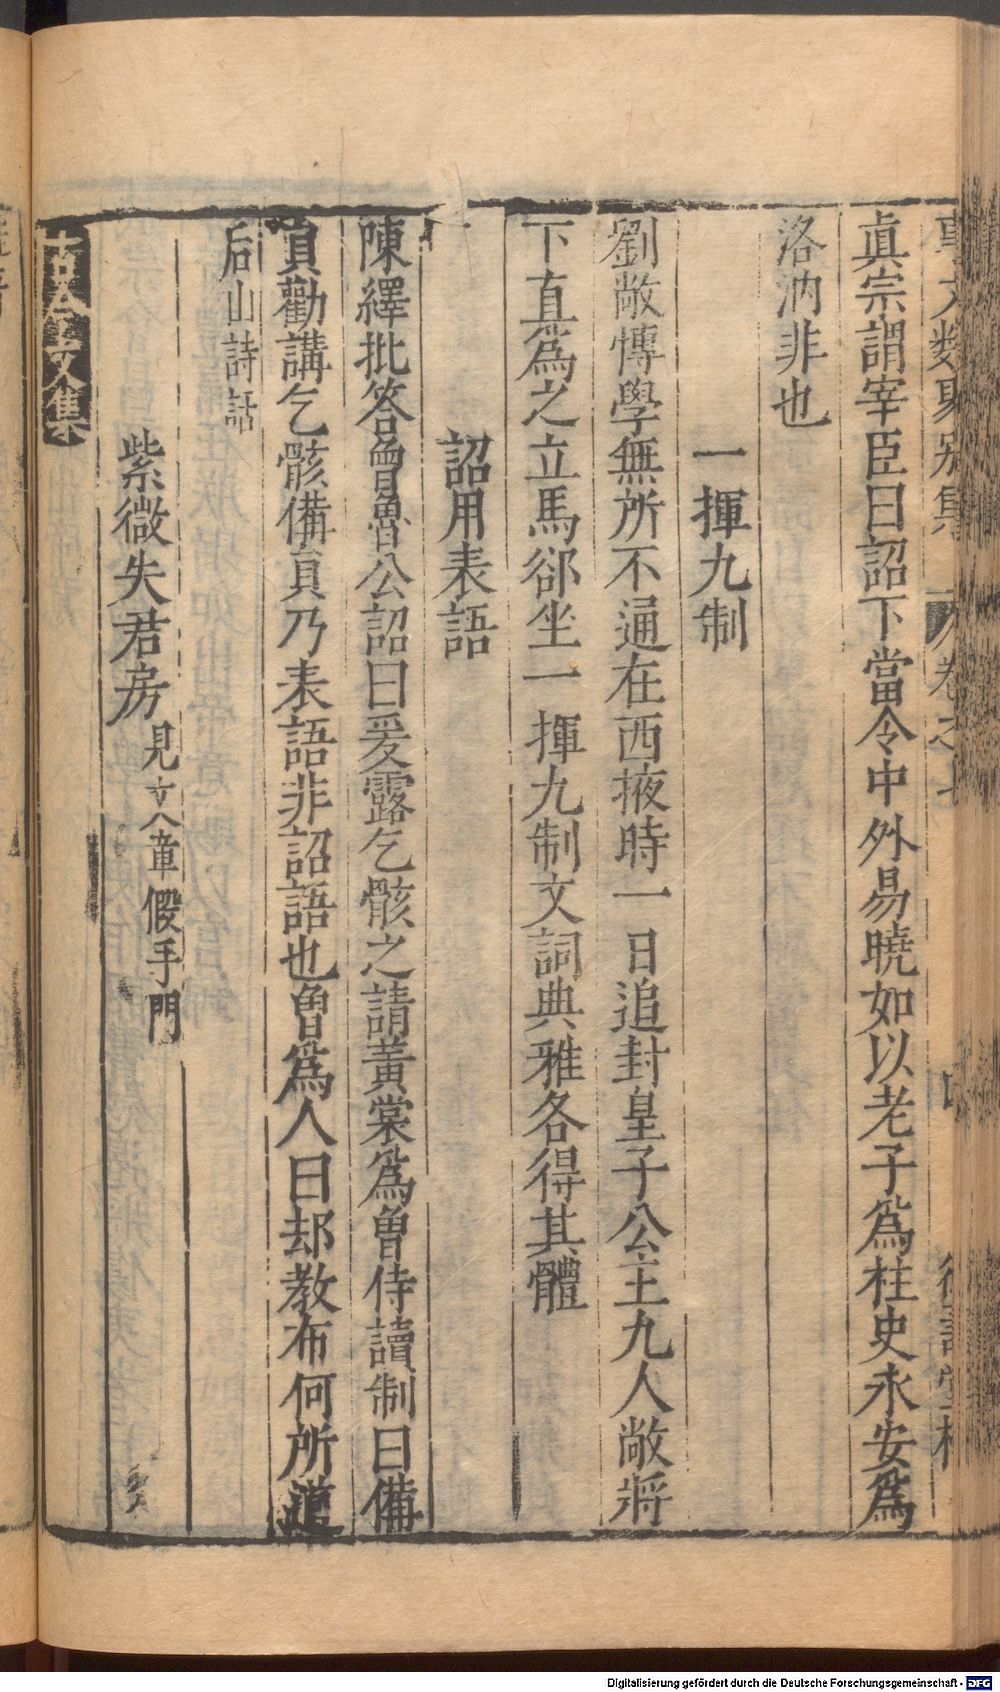 事文類聚別集 卷之七
眞宗謂宰臣曰詔下當令中外易曉如以老子爲柱史永安爲
洛汭非也
一揮九制
劉敞愽學無所不通在西掖時一日追封皇子公主九人敞將
下直爲之立馬郤坐一揮九制文詞典雅各得其體
詔用表語
陳繹批答曾魯公詔曰爰露乞骸之請黃裳爲曾侍讀制曰備
員勸講乞骸備員乃表語非詔語也魯爲人曰却教布何所道
后山詩話
紫微失君房見文章假手門
古今文集
Digitalisierung gefördert durch die Deutsche Forschungsgemeinschaft - DFG